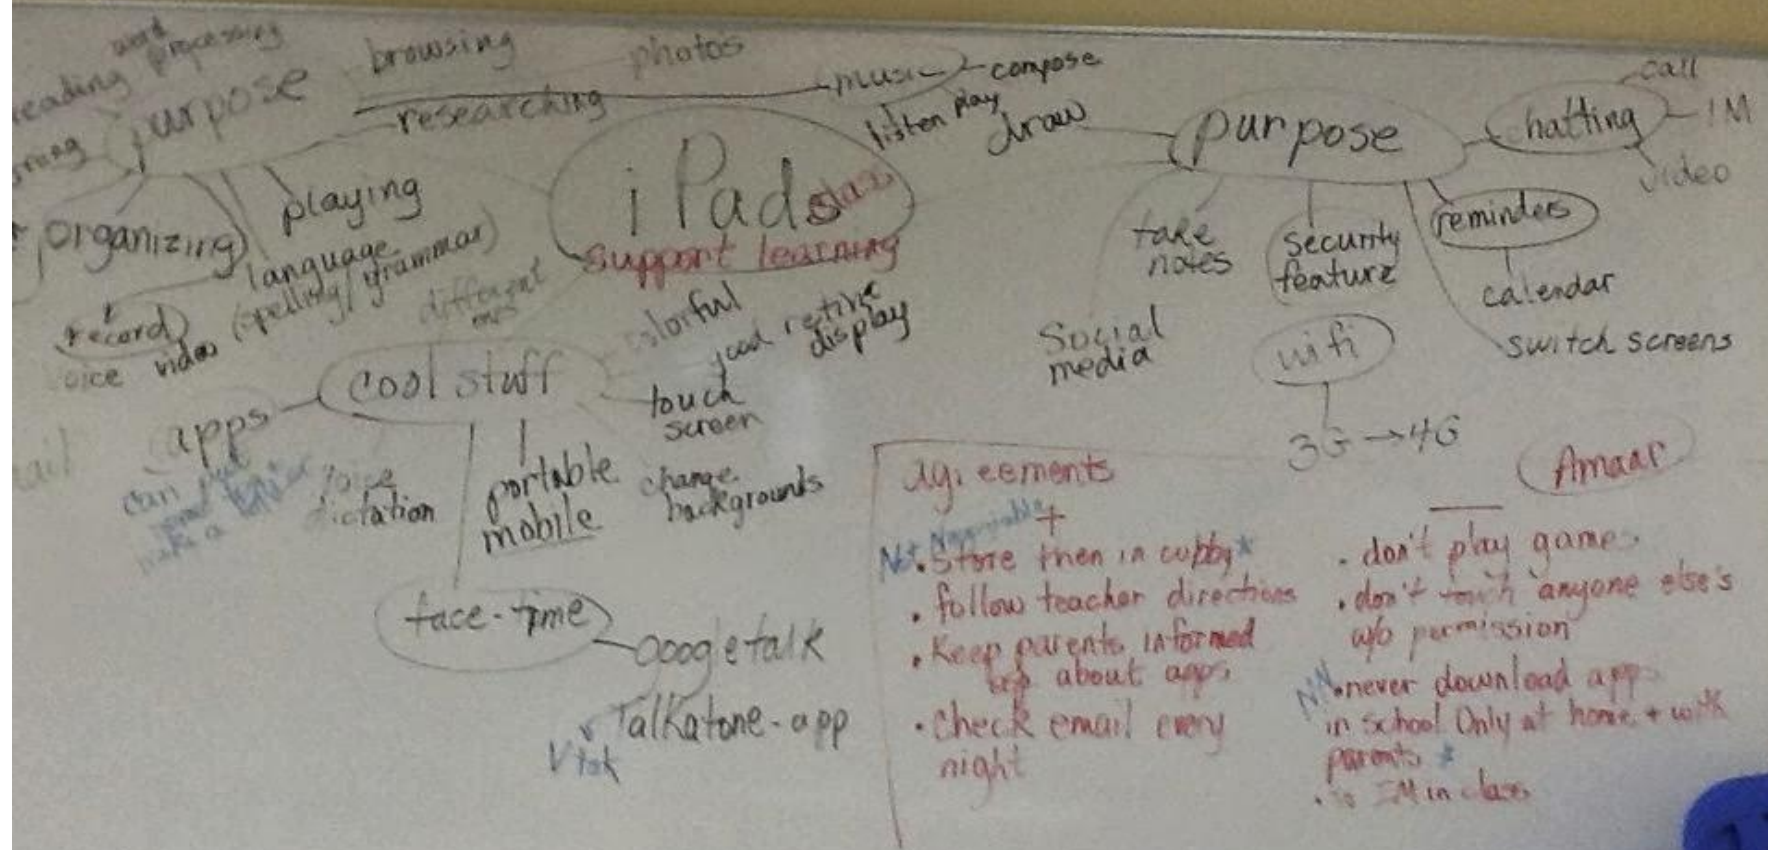 word
processing
reading
purpose
browsing
photos
researching
music
compose
listen play
draw
organizing
playing
language
(spelling, grammar)
record
video
iPads
support learning
different
colorful
good retina
display
cool stuff
touch
screen
apps
can
make a
voice
dictation
portable
mobile
change
backgrounds
face-time
google talk
Talkatone-app
Vtok
purpose
chatting
call
IM
video
take
notes
security
feature
reminders
calendar
switch screens
Social
media
wifi
3G → 4G
agreements
Amaar
+
Not Negotiable
• Store then in cubby *
• follow teacher directions
• Keep parents informed
about apps
• check email every
night
—
• don't play games
• don't touch anyone else's
w/o permission
NN • never download app
in school Only at home + with
parents *
• no IM in class